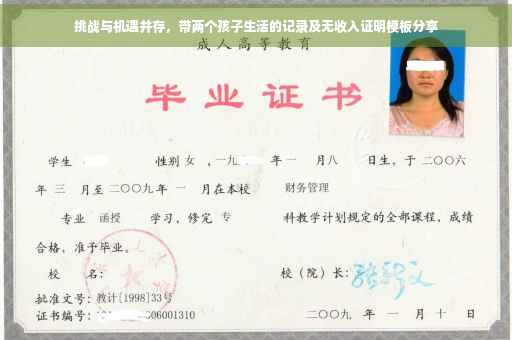 挑战与机遇并存，带两个孩子生活的记录及无收入证明模板分享
成人高等教育
毕业证书
学生 性别 女 ，一九 年 一 月 八 日生，于 二〇〇六
年 三 月至 二〇〇九 年 一 月在本校 财务管理
专业 函授 学习，修完 专 科教学计划规定的全部课程，成绩
合格，准予毕业。
校 名： 校（院）长：
批准文号：教计[1998]33号
证书编号： 06001310 二〇〇九 年 一 月 十 日